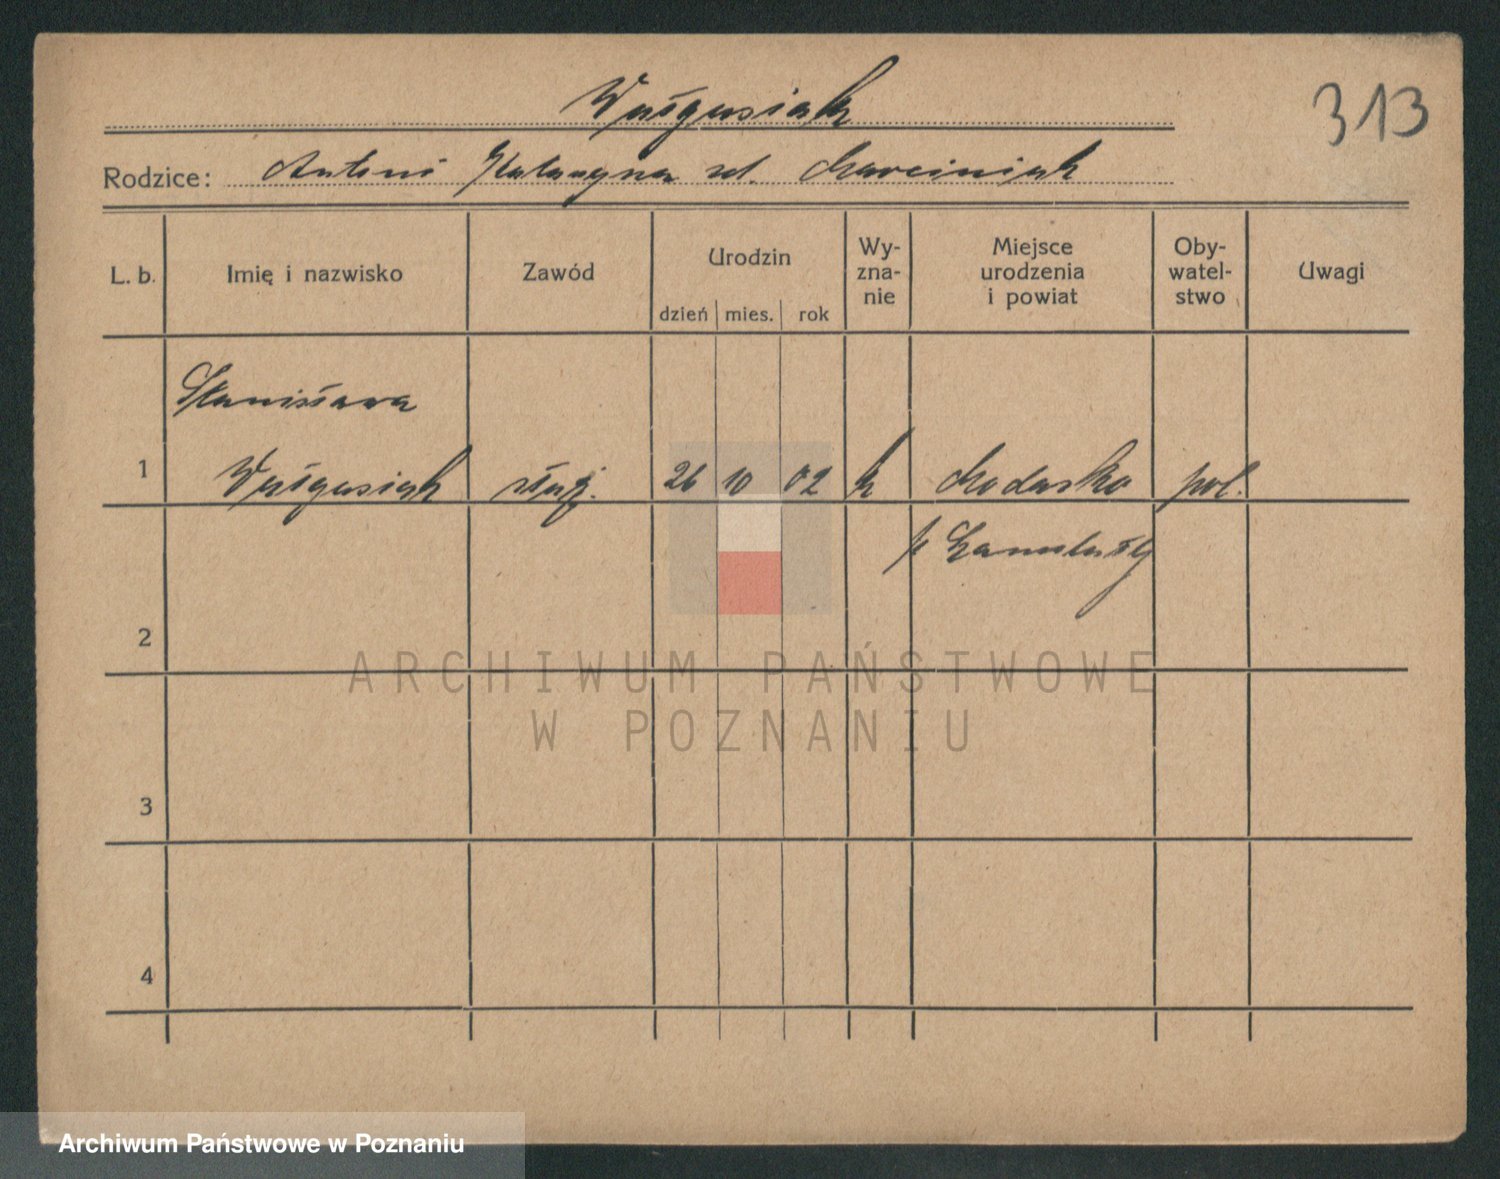 Wałgusiak
313
Rodzice: Antoni Katarzyna zd. Marciniak
L. b. Imię i nazwisko Zawód Urodzin Wy-zna-nie Miejsce urodzenia i powiat Oby-watel-stwo Uwagi
dzień mies. rok
Stanisława
1 Wałgusiak służ. 26 10 02 k pol.
2
3
4
ARCHIWUM PAŃSTWOWE
W POZNANIU
Archiwum Państwowe w Poznaniu